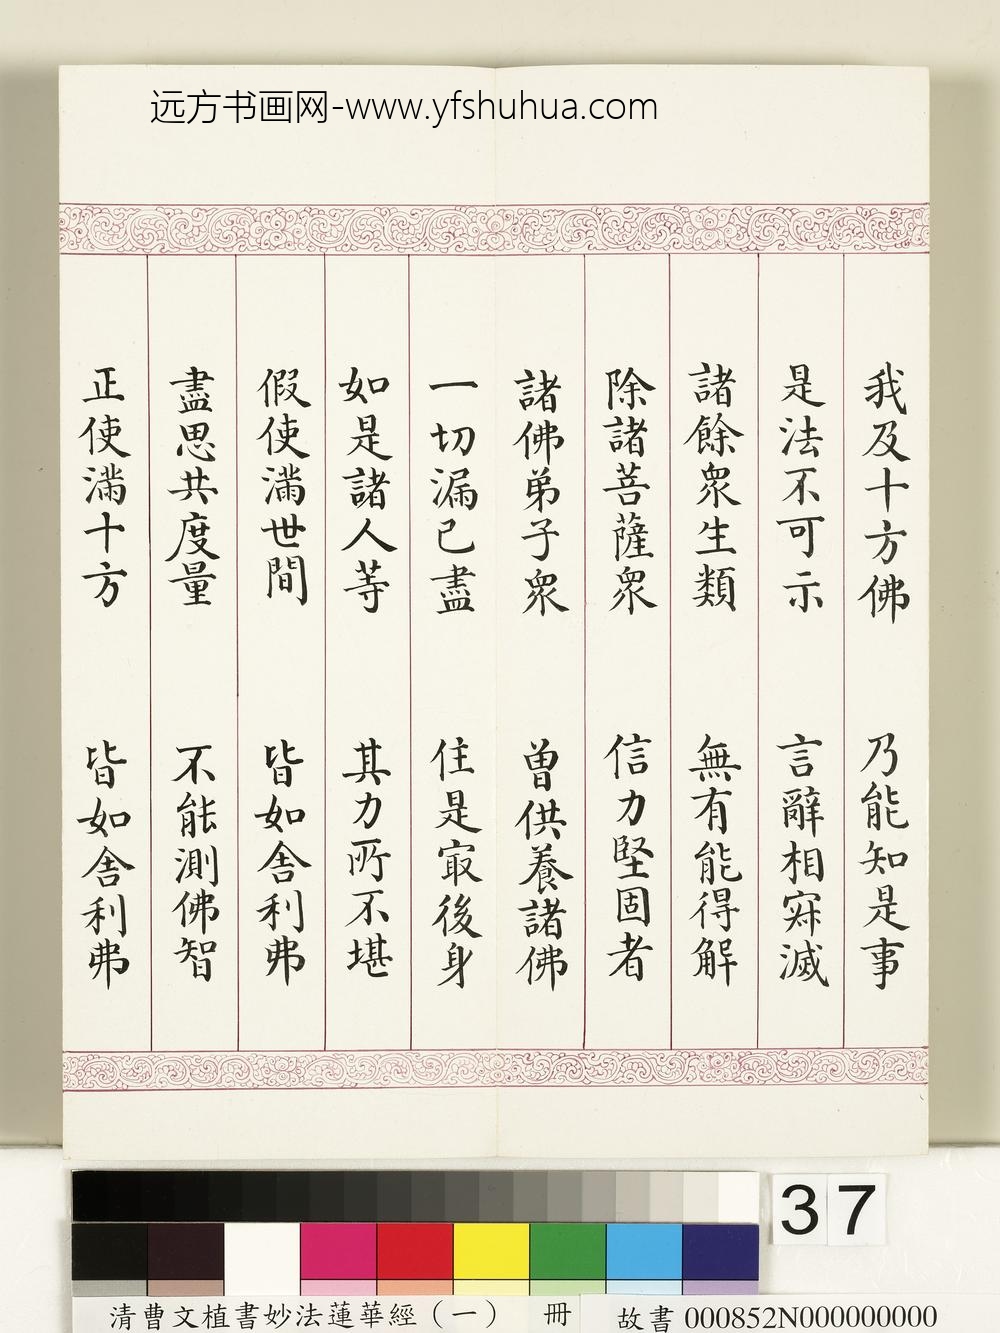 远方书画网-www.yfshuhua.com
我及十方佛　乃能知是事
是法不可示　言辭相寂滅
諸餘眾生類　無有能得解
除諸菩薩眾　信力堅固者
諸佛弟子眾　曾供養諸佛
一切漏已盡　住是㝡後身
如是諸人等　其力所不堪
假使滿世間　皆如舍利弗
盡思共度量　不能測佛智
正使滿十方　皆如舍利弗
37
清曹文植書妙法蓮華經（一）　冊　故書 000852N000000000